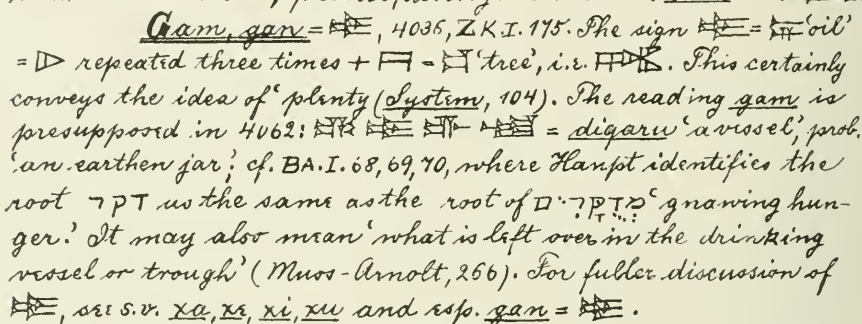 Gam, gan = 𒃶, 4036, ZK.I. 175. The sign 𒃶 = 'oil'
= repeated three times + = 'tree', i.e. . This certainly
conveys the idea of 'plenty (System, 104). The reading gam is
presupposed in 4062: = diqaru 'a vessel', prob.
'an earthen jar', cf. BA.I. 68, 69, 70, where Haupt identifies the
root דקר us the same as the root of 'gnawing hun-
ger.' It may also mean 'what is left over in the drinking
vessel or trough' (Muss-Arnolt, 266). For fuller discussion of
𒃶, see s.v. xa, xe, xi, xu and esp. gan = 𒃶.